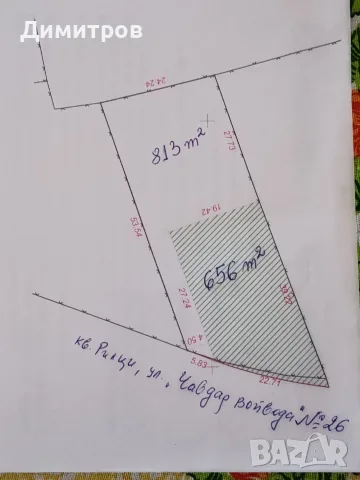 Димитров
24.24
813 m²
27.73
53.54
19.42
656 m²
27.24
39.22
4.50
5.83
22.71
кв. Рилци, ул. „Чавдар войвода" №26
BAZAR